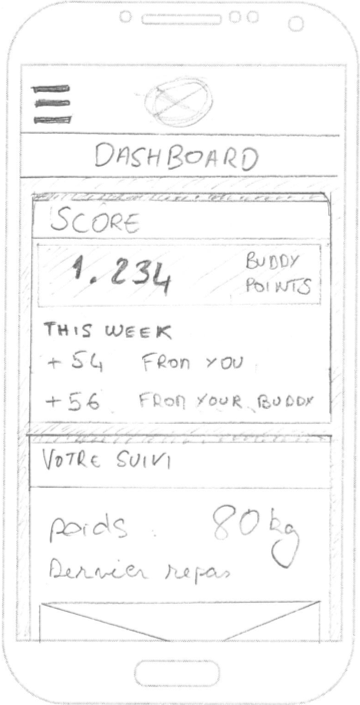 DASHBOARD
SCORE
1.234 BUDDY POINTS
THIS WEEK
+ 54 FROM YOU
+ 56 FROM YOUR BUDDY
VOTRE SUIVI
poids : 80 kg
Dernier repas